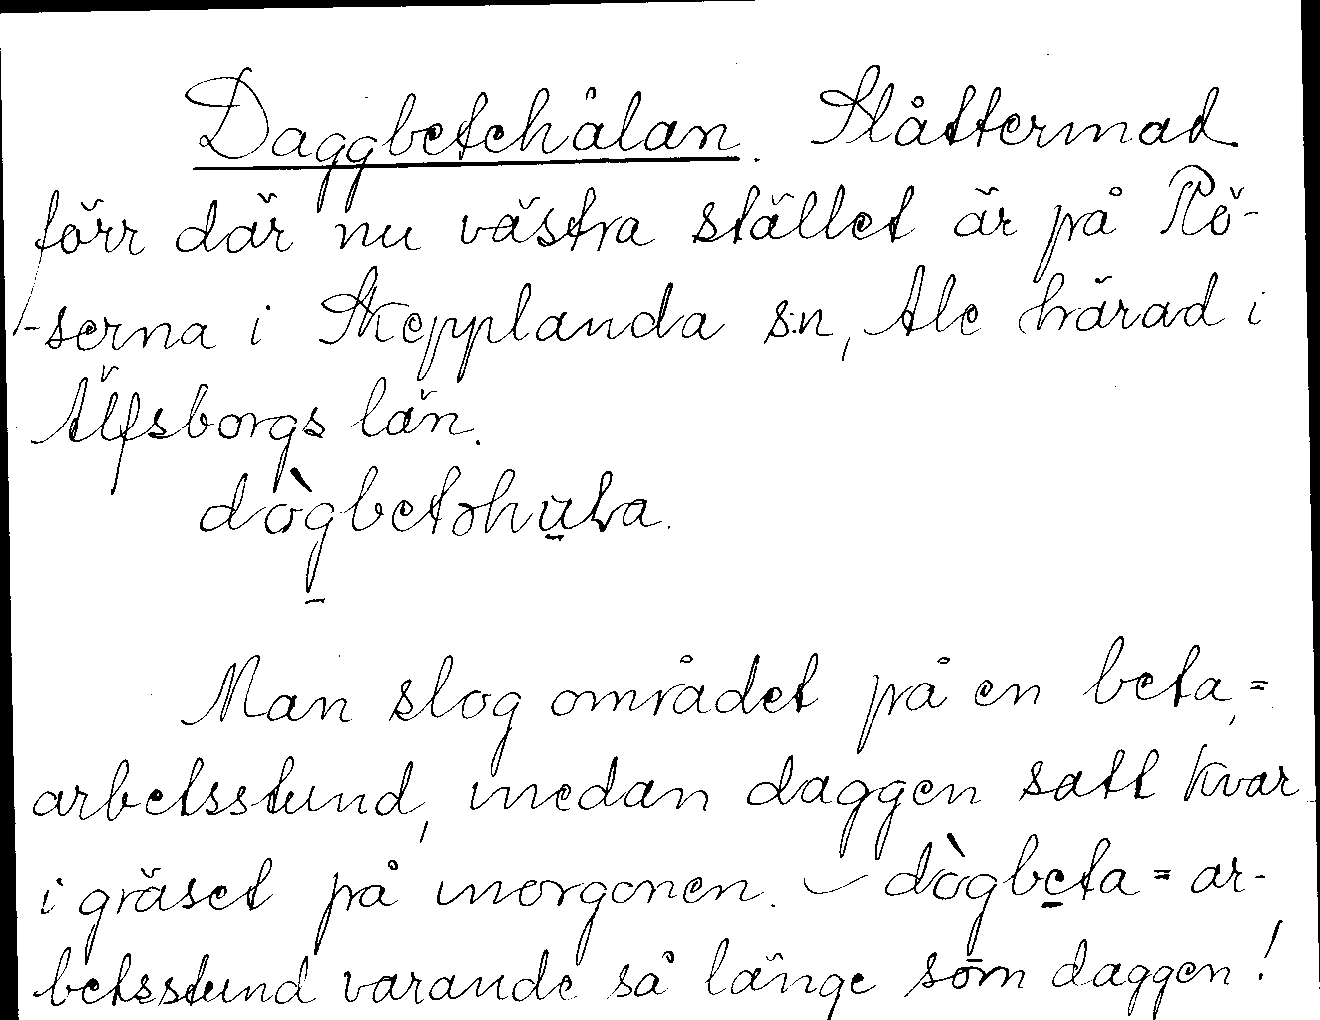 Daggbetehålan. Slåttermad
förr där nu västra stället är på Rö-
-serna i Skepplanda s:n, Ale härad i
Älfsborgs län.
dògbetəhu̲la.
Man slog området på en beta, =
arbetsstund, medan daggen satt kvar
i gräset på morgonen. – dògbe̲ta = ar-
betsstund varande så länge som daggen!